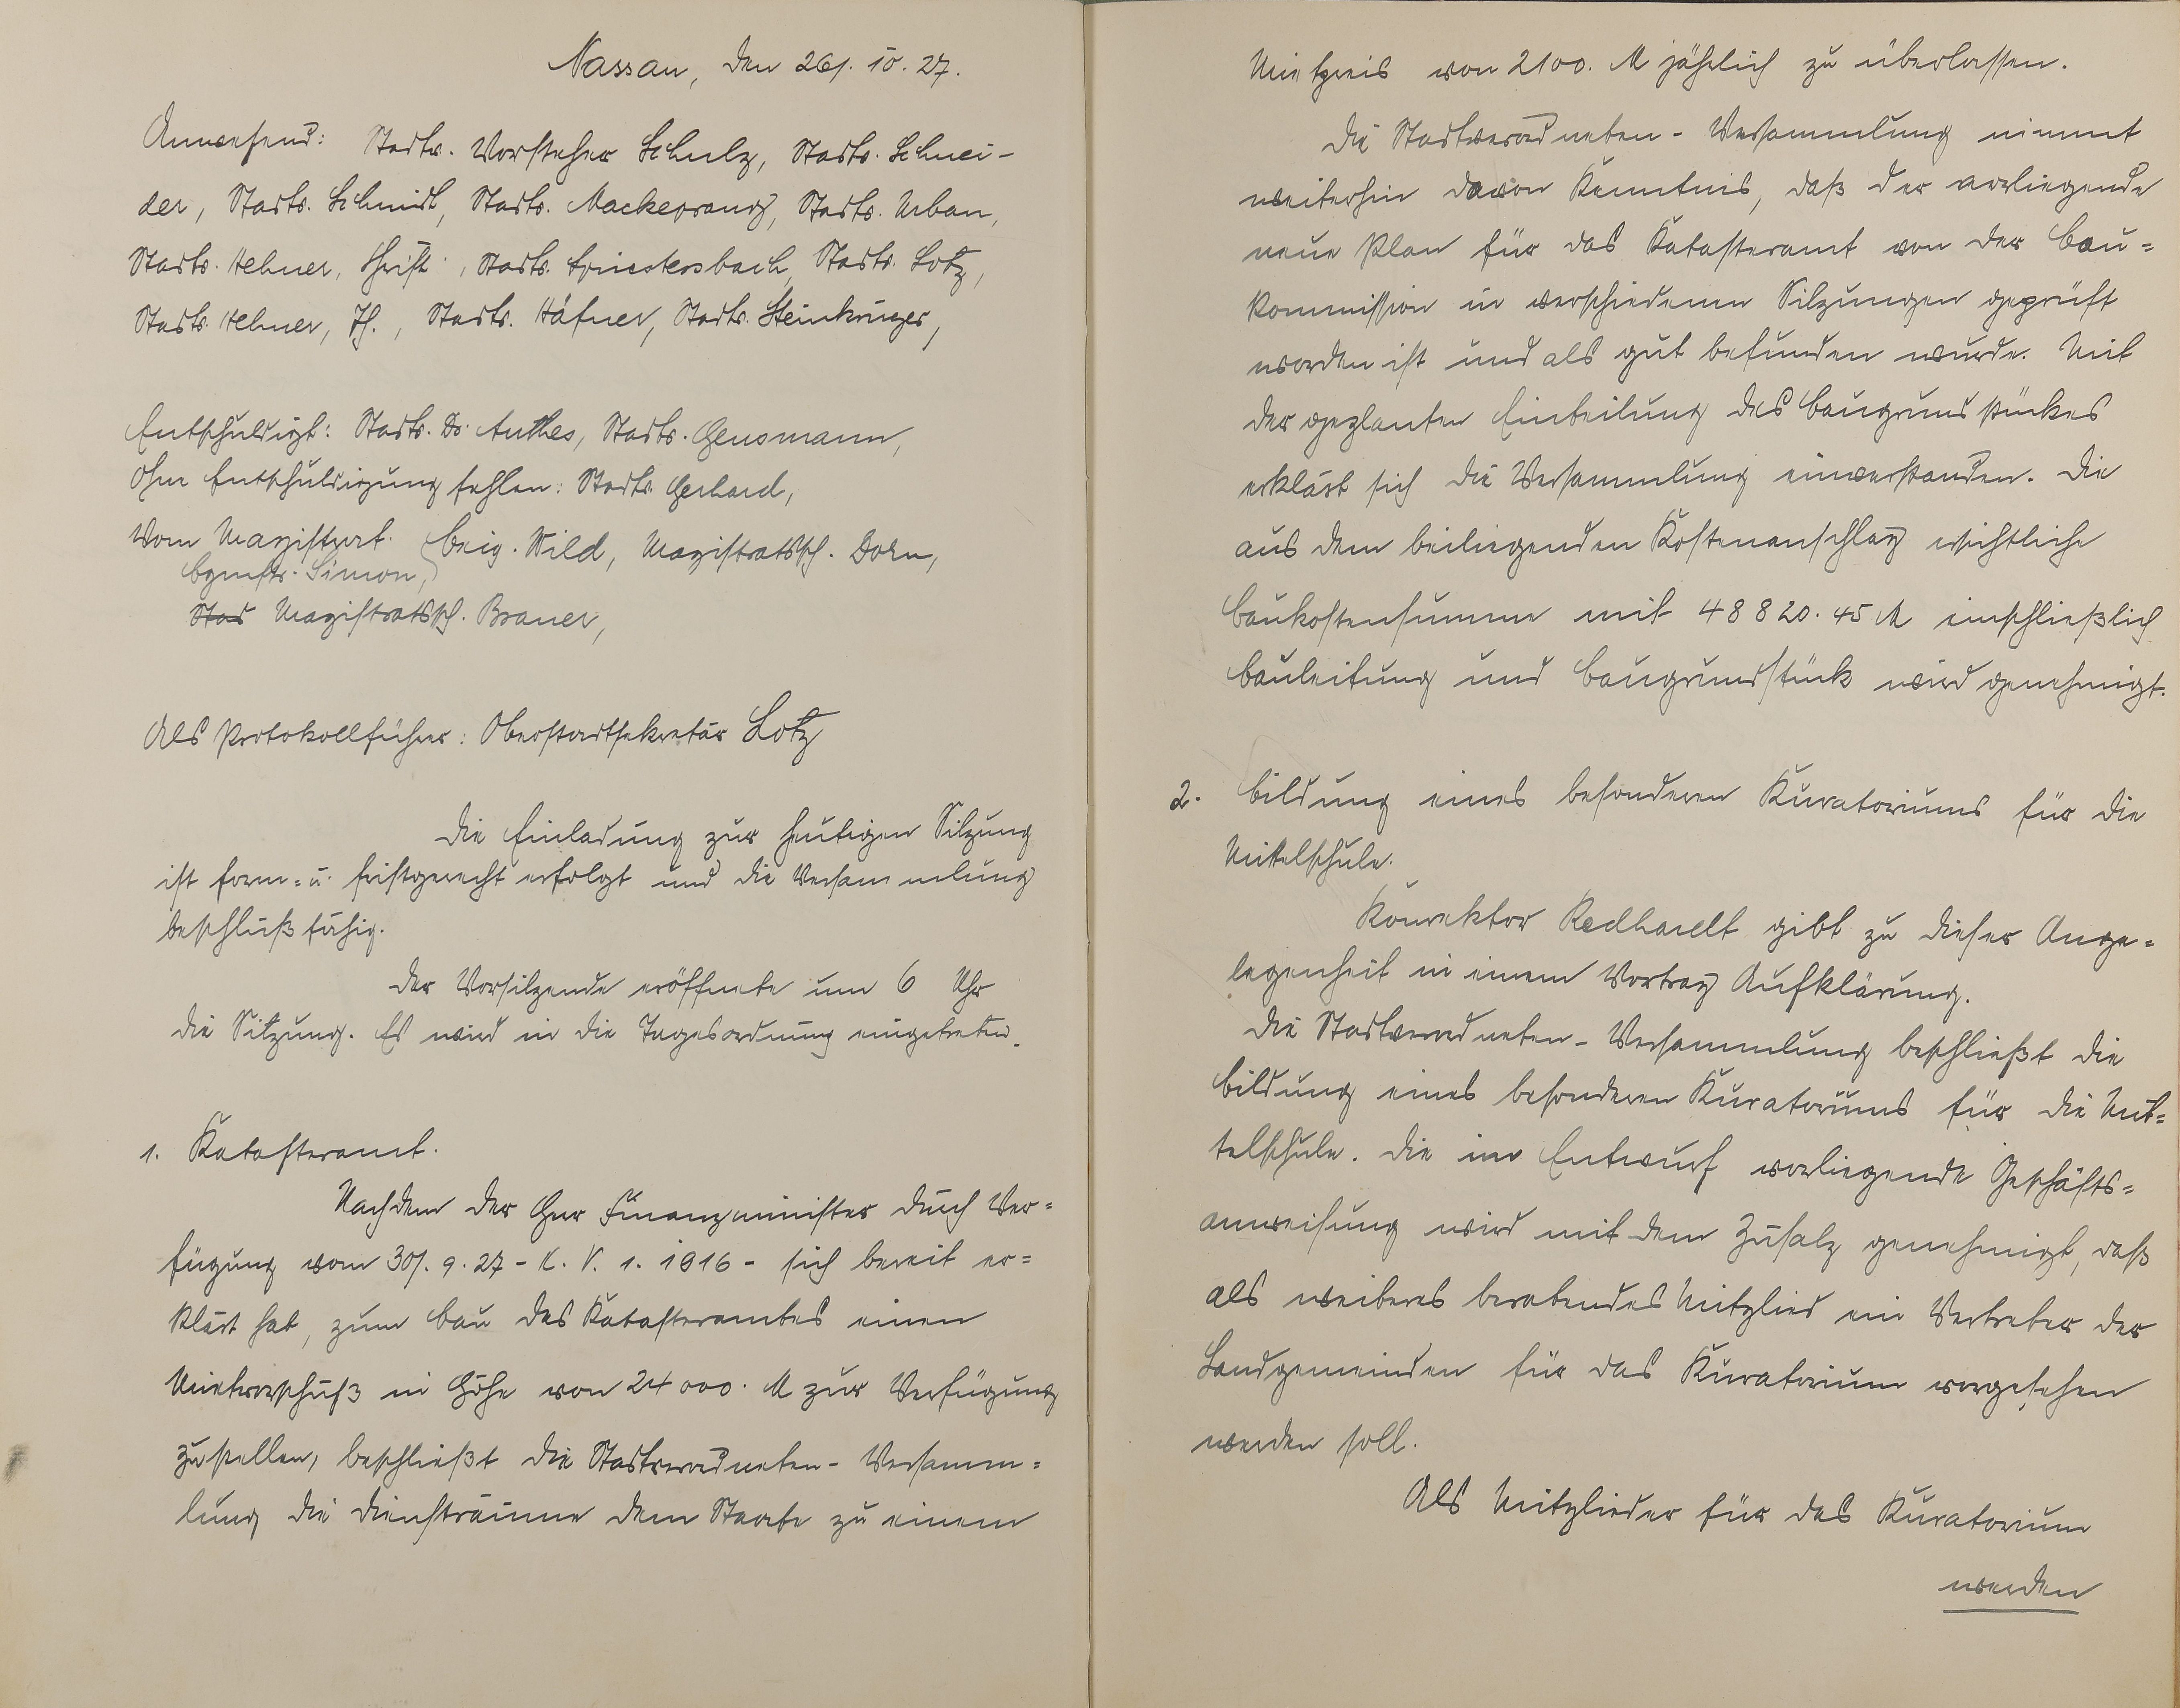 Nassau, den 26/. 10. 27.
Anwesend: Stadtv. Vorsteher Schulz, Stadtv. Schnei-
der, Stadtv. Schmidt, Stadtv. Mackeprang, Stadtv. Urban,
Stadtv. Hehner, Christ., Stadtv. Spriestersbach, Stadtv. Lotz,
Stadtv. Hehner, Th., Stadtv. Häfner, Stadtv. Steinkrüger,
Entschuldigt: Stadtv. Dr. Anthes, Stadtv. Gensmann,
Ohne Entschuldigung fehlen: Stadtv. Gerhard,
Vom Magistrat. Beig. Wild, Magistratssch. Dorn,
Bgmstr. Simon,
Stad Magistratssch. Braner,
Als Protokollführer: Oberstadtsekretär Lotz
Die Einladung zur heutigen Sitzung
ist form= u. fristgerecht erfolgt und die Versammlung
beschlußfähig.
Der Vorsitzende eröffnete um 6 Uhr
die Sitzung. Es wird in die Tagesordnung eingetreten.
1. Katasteramt.
Nachdem der Herr Finanzminister durch Ver=
fügung vom 30/. 9. 27 - K. V. 1. 1816 - sich bereit er=
klärt hat, zum Bau des Katasteramtes einen
Mietvorschuß in Höhe von 24 000. M zur Verfügung
zustellen, beschließt die Stadtverordneten- Versamm=
lung die Diensträume dem Staate zu einem
Mietpreis von 2100. M jährlich zu überlassen.
Die Stadtverordneten - Versammlung nimmt
weiterhin davon Kenntnis, daß der vorliegende
neue Plan für das Katasteramt von der Bau=
kommission in verschiedenen Sitzungen geprüft
worden ist und als gut befunden wurde. Mit
der geplanten Einteilung des Baugrundstückes
erklärt sich die Versammlung einverstanden. Die
aus dem beiliegenden Kostenanschlag ersichtliche
Baukostensumme mit 48 820. 45 M einschließlich
Bauleitung und Baugrundstück wird genehmigt.
2. Bildung eines besonderen Kuratoriums für die
Mittelschule.
Konrektor Redhardt gibt zu dieser Ange=
legenheit in einem Vortrag Aufklärung.
Die Stadtverordneten- Versammlung beschließt die
Bildung eines besonderen Kuratoriums für die Mit=
telschule. Die im Entwurf vorliegende Geschäfts=
anweisung wird mit dem Zusatz genehmigt, daß
als weiteres beratendes Mitglied ein Vertreter der
Landgemeinden für das Kuratorium vorgesehen
werden soll.
Als Mitglieder für das Kuratorium
werden